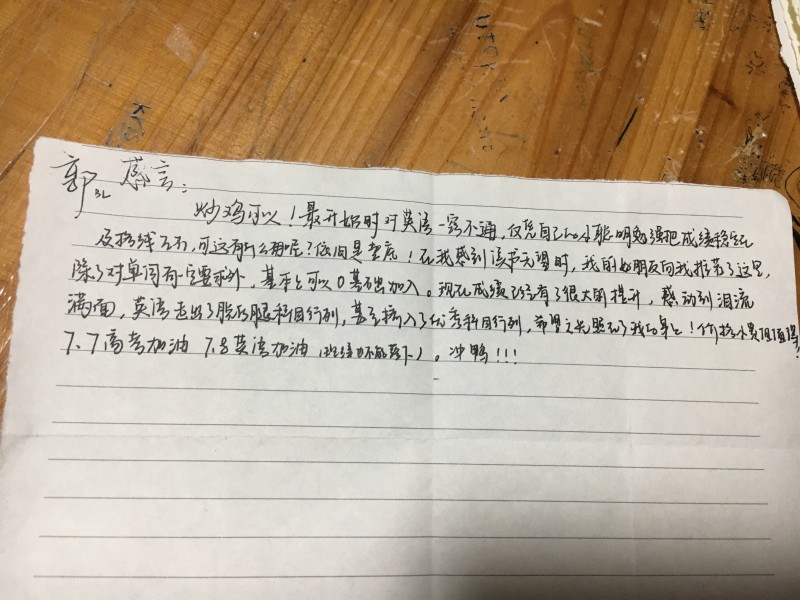 郭BL 感言：
炒鸡可以！最开始时对英语一窍不通，仅凭自己的小聪明勉强把成绩稳定在
及格线左右，可这有什么用呢？依旧是垫底！在我感到读书无望时，我的好朋友向我推荐了这里，
除了对单词有一定要求外，基本上可以0基础加入。现在成绩已经有了很大的提升，感动到泪流
满面，英语走出了脱后腿科目行列，甚至挤入了优秀科目行列，希望之光照在了我的身上！价格小贵但值得！
7.7高考加油 7.8英语加油（班续也不能落下）。冲鸭！！！